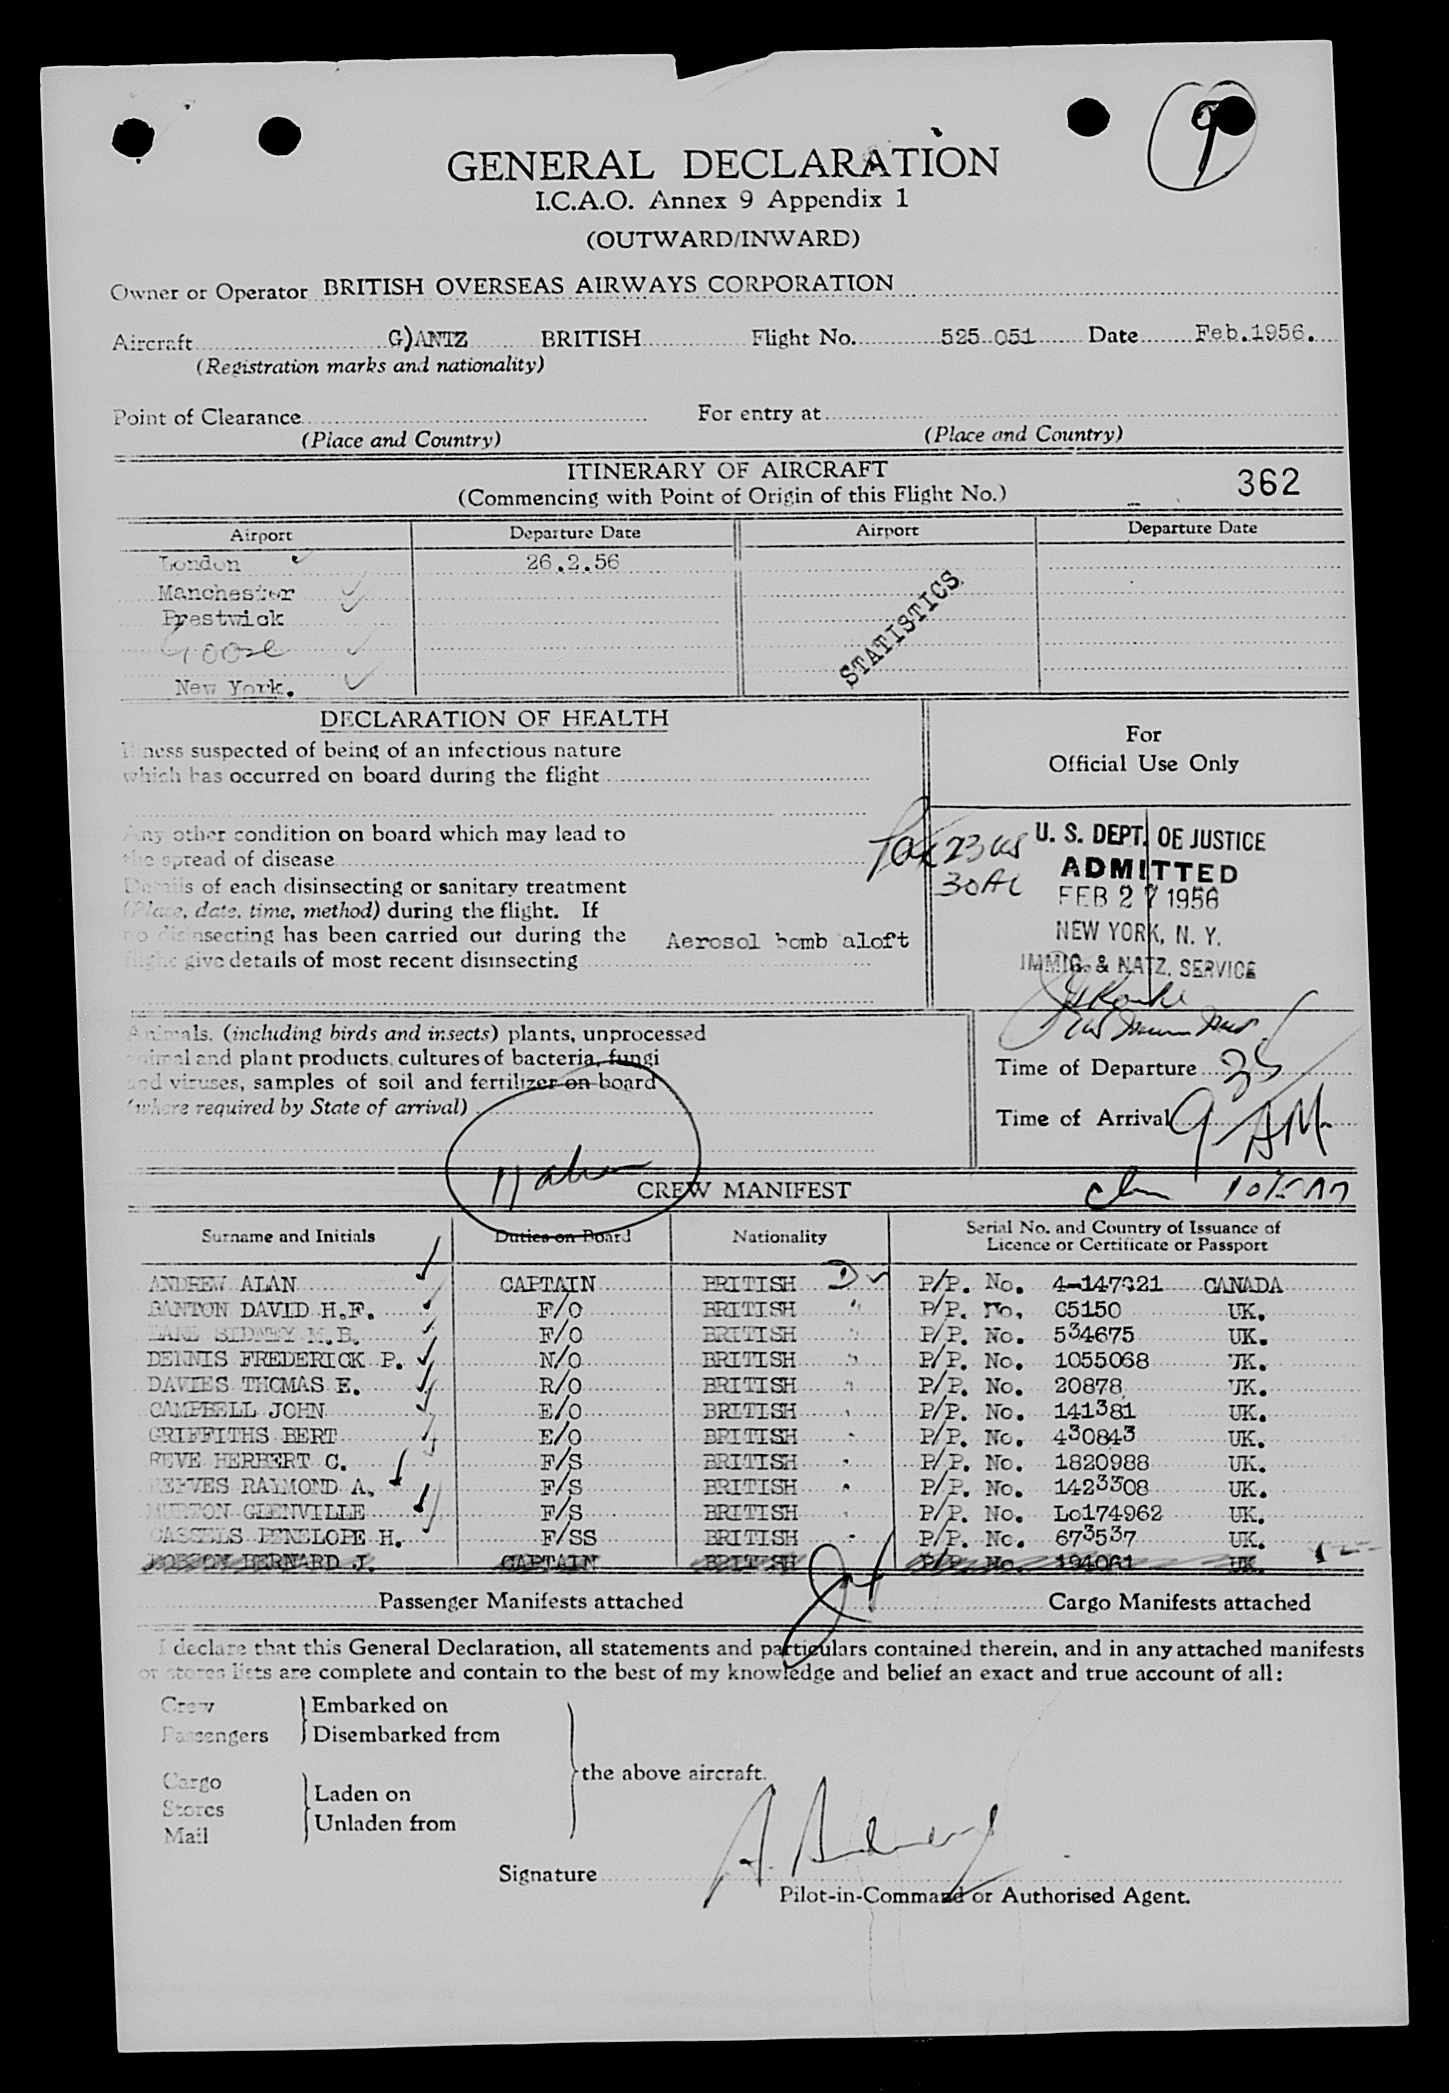 9
GENERAL DECLARATION
I.C.A.O. Annex 9 Appendix 1
(OUTWARD/INWARD)
Owner or Operator BRITISH OVERSEAS AIRWAYS CORPORATION
Aircraft G)ANTZ BRITISH Flight No. 525 051 Date Feb.1956.
(Registration marks and nationality)
Point of Clearance For entry at
(Place and Country) (Place and Country)
ITINERARY OF AIRCRAFT
(Commencing with Point of Origin of this Flight No.) 362
Airport Departure Date Airport Departure Date
London 26.2.56
Manchester
Prestwick
Goose
New York.
STATISTICS
DECLARATION OF HEALTH
Illness suspected of being of an infectious nature
which has occurred on board during the flight
Any other condition on board which may lead to
the spread of disease
Details of each disinsecting or sanitary treatment
(Place, date, time, method) during the flight. If
no disinsecting has been carried out during the
flight give details of most recent disinsecting Aerosol bomb aloft
For
Official Use Only
23 US
30 AL
U. S. DEPT. OF JUSTICE
ADMITTED
FEB 27 1956
NEW YORK, N. Y.
IMMIG. & NATZ. SERVICE
Animals, (including birds and insects) plants, unprocessed
animal and plant products, cultures of bacteria, fungi
and viruses, samples of soil and fertilizer on board
(where required by State of arrival)
Time of Departure
Time of Arrival 9 35 AM
CREW MANIFEST
Surname and Initials Duties on Board Nationality Serial No. and Country of Issuance of
Licence or Certificate or Passport
ANDREW ALAN CAPTAIN BRITISH P/P. No. 4-147321 CANADA
BANTON DAVID H.F. F/O BRITISH P/P. No. C5150 UK.
F/O BRITISH P/P. No. 534675 UK.
DENNIS FREDERICK P. N/O BRITISH P/P. No. 1055068 UK.
DAVIES THOMAS E. R/O BRITISH P/P. No. 20878 UK.
CAMPBELL JOHN E/O BRITISH P/P. No. 141381 UK.
GRIFFITHS BERT E/O BRITISH P/P. No. 430843 UK.
REVE HERBERT C. F/S BRITISH P/P. No. 1820988 UK.
REEVES RAYMOND A. F/S BRITISH P/P. No. 1423308 UK.
GLENVILLE F/S BRITISH P/P. No. Lo174962 UK.
CASSELS PENELOPE H. F/SS BRITISH P/P. No. 673537 UK.
BERNARD J. CAPTAIN BRITISH P/P. No. 194061 UK.
Passenger Manifests attached Cargo Manifests attached
I declare that this General Declaration, all statements and particulars contained therein, and in any attached manifests
or stores lists are complete and contain to the best of my knowledge and belief an exact and true account of all:
Crew Embarked on
Passengers Disembarked from
the above aircraft.
Cargo Laden on
Stores Unladen from
Mail
Signature
Pilot-in-Command or Authorised Agent.